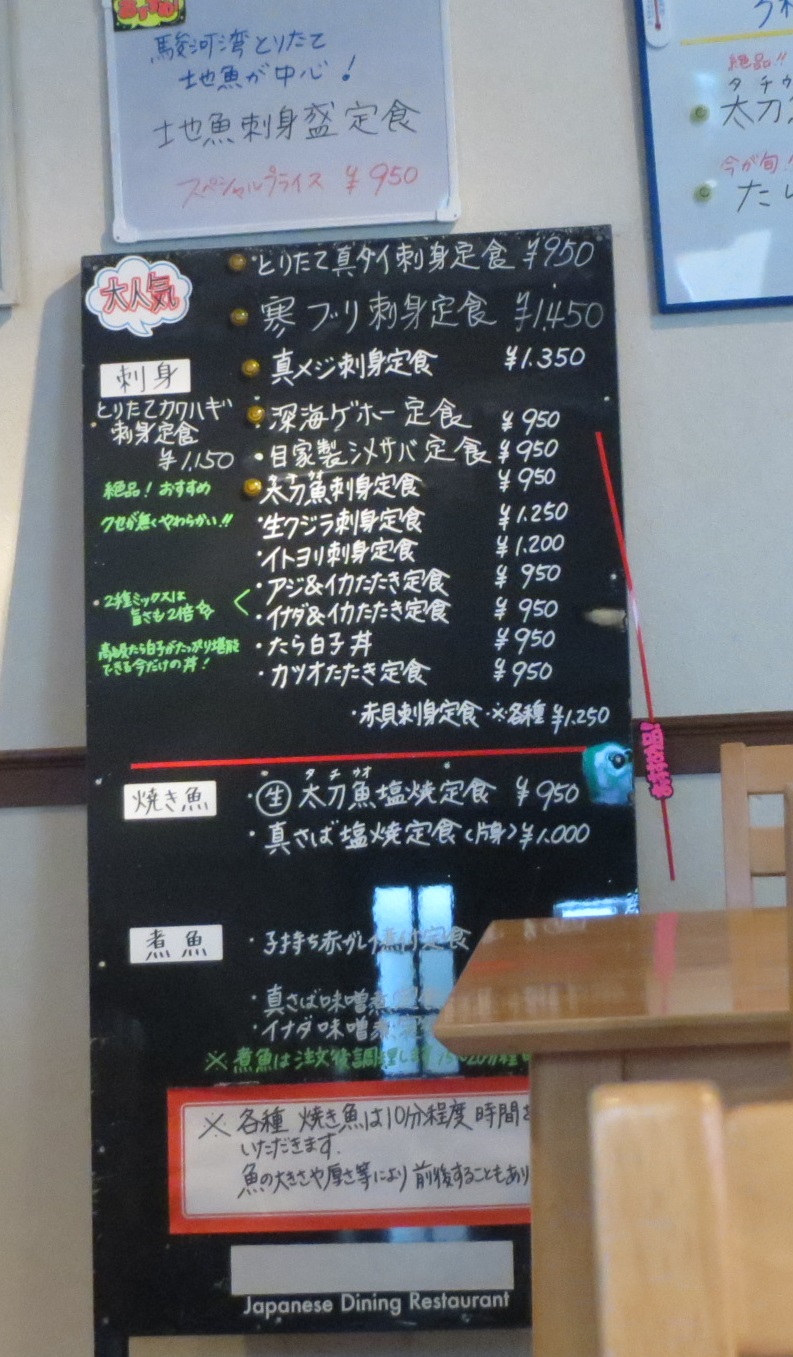 駿河湾とりたて
地魚が中心!
地魚刺身盛定食
スペシャルプライス ¥950
絶品!!
タチウ
太刀
今が旬!
た
大人気
・とりたて真ダイ刺身定食 ¥950
寒ブリ刺身定食 ¥1.450
刺身
・真メジ刺身定食 ¥1.350
とりたてカワハギ
刺身定食
¥1,150
・深海ゲホー定食 ¥950
・自家製シメサバ定食 ¥950
絶品!おすすめ
・太刀魚刺身定食 ¥950
クセが無くやわらかい!!
・生クジラ刺身定食 ¥1.250
・イトヨリ刺身定食 ¥1.200
・アジ&イカたたき定食 ¥950
・2種ミックスは
旨さも2倍☆
・イナダ&イカたたき定食 ¥950
たら白子がたっぷり堪能
できる今だけの丼!
・たら白子丼 ¥950
・カツオたたき定食 ¥950
・赤貝刺身定食・※各種 ¥1.250
焼き魚
タチウオ
・生 太刀魚塩焼定食 ¥950
・真さば塩焼定食(片身)¥1.000
煮魚
・子持ち赤がレイ煮付定食
・真さば味噌煮定食
・イナダ味噌煮定食
※煮魚は注文後調理します
※各種 焼き魚は10分程度時間を
いただきます.
魚の大きさや厚さ等により前後することもあり
Japanese Dining Restaurant